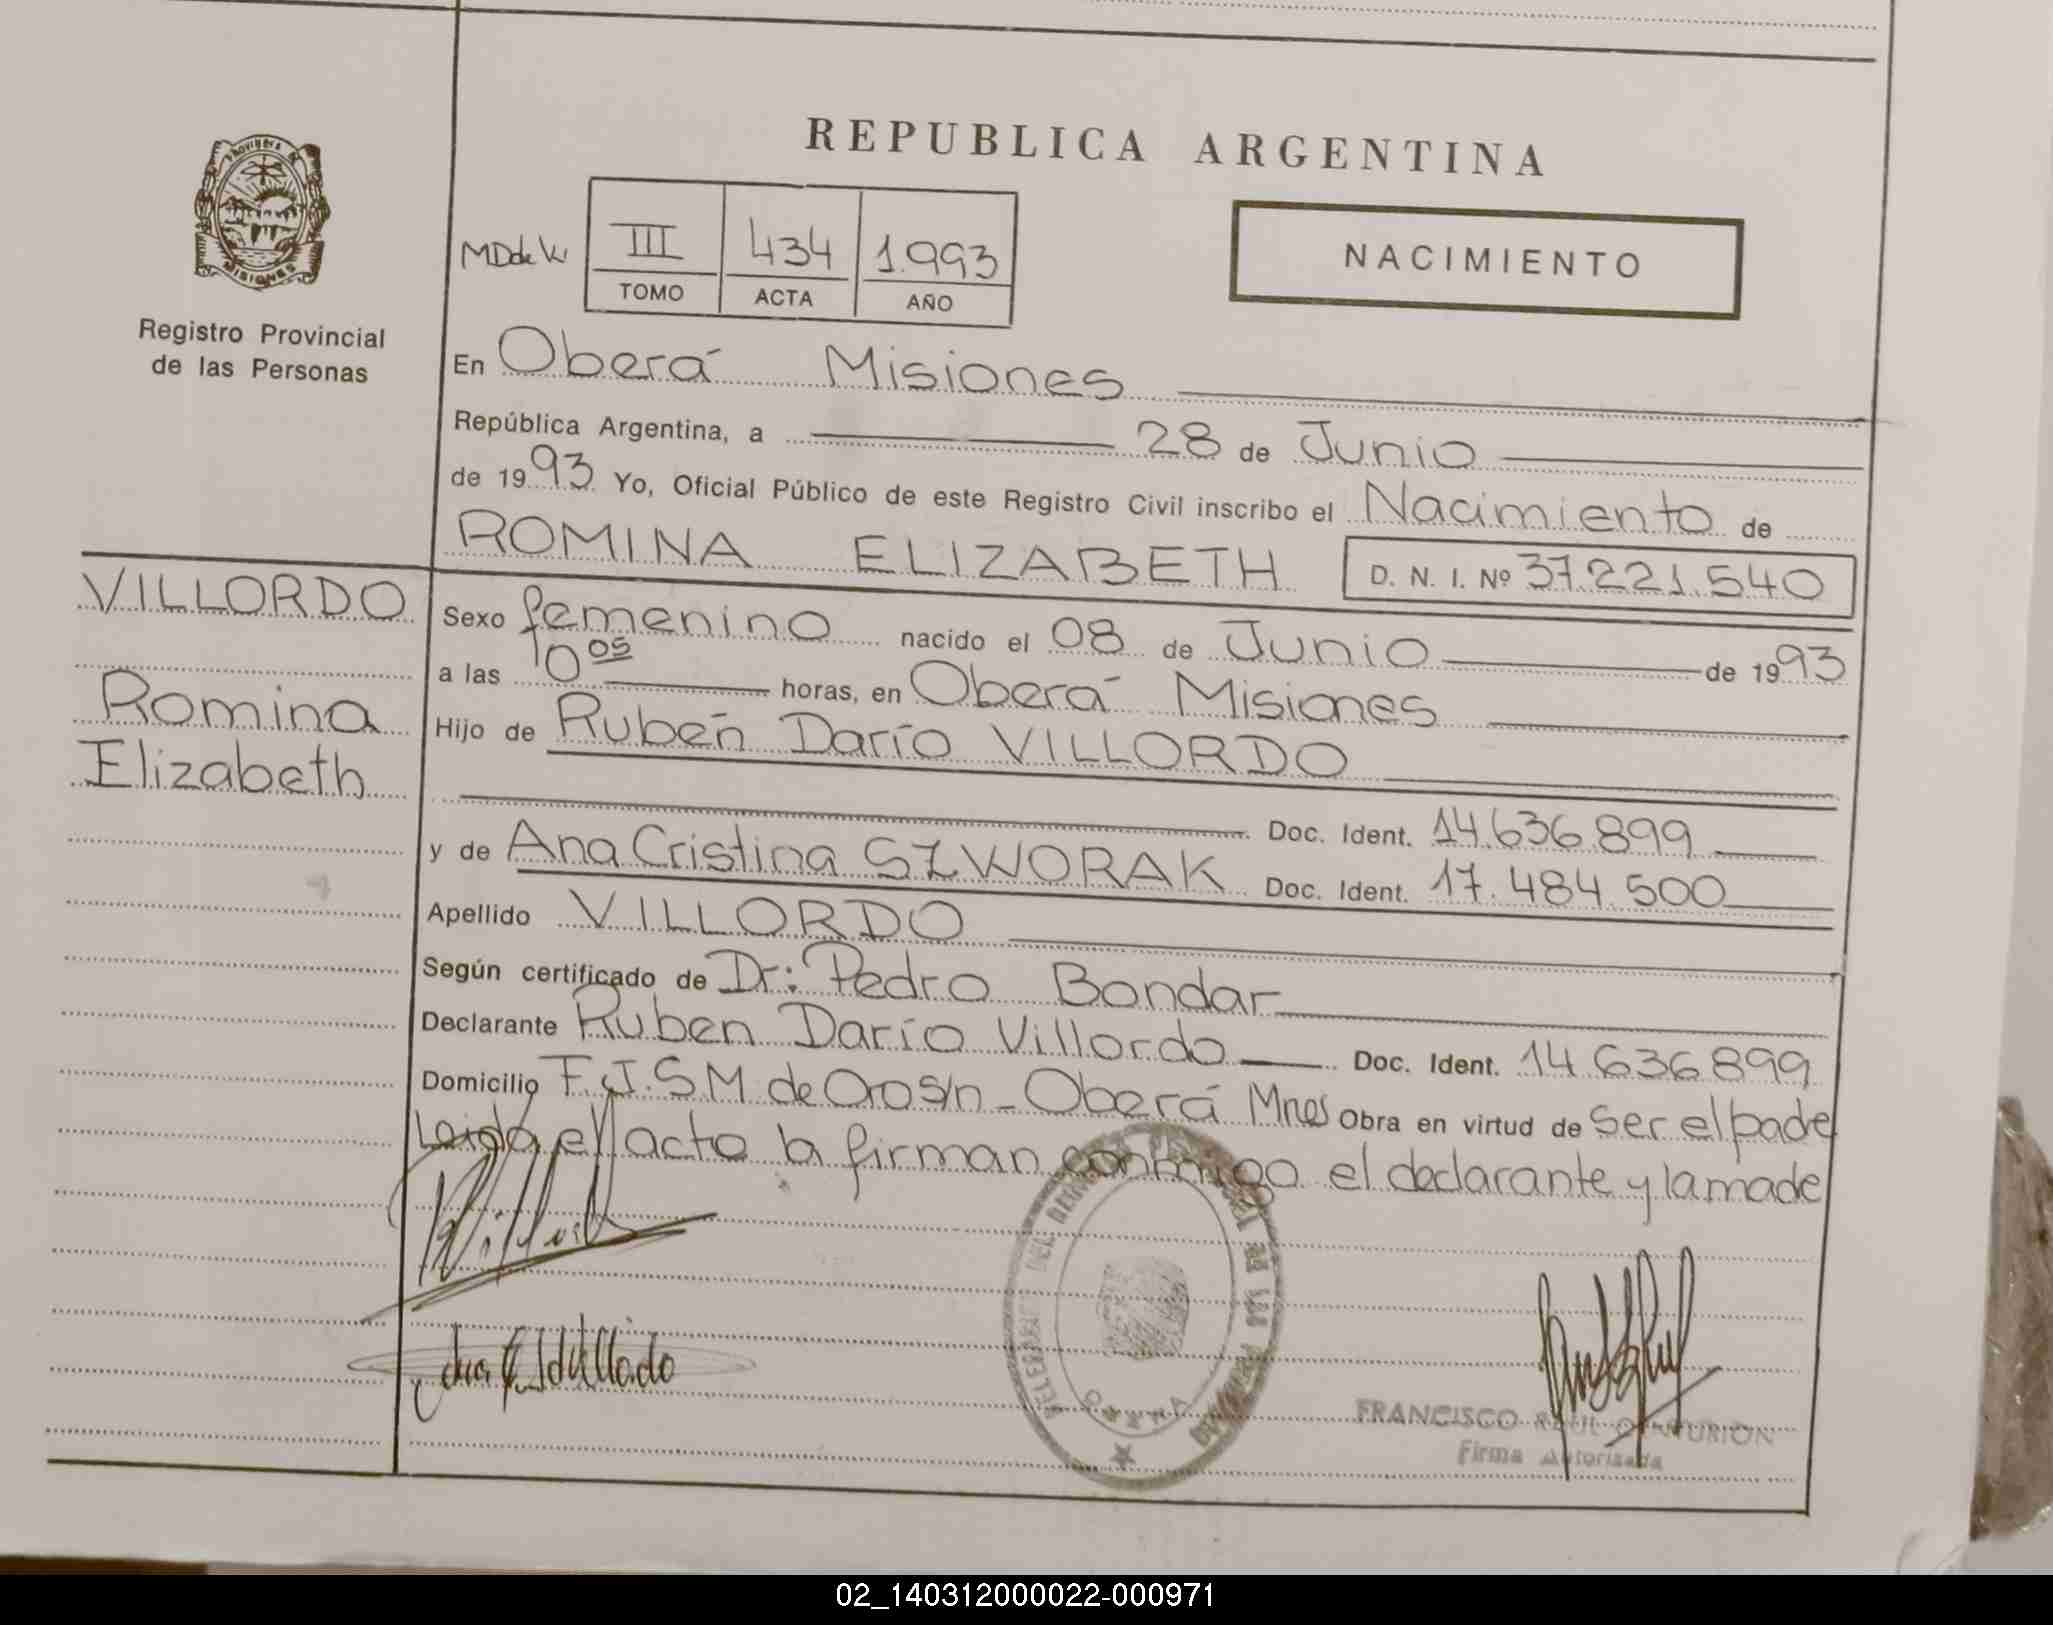 REPUBLICA ARGENTINA
Provincia de
MISIONES
Registro Provincial
de las Personas
III 434 1.993
TOMO ACTA AÑO
NACIMIENTO
En Oberá Misiones
República Argentina, a 28 de Junio
de 1993 Yo, Oficial Público de este Registro Civil inscribo el Nacimiento de
ROMINA ELIZABETH D. N. I. Nº 37.221.540
VILLORDO
Romina
Elizabeth
Sexo femenino nacido el 08 de Junio de 1993
a las 10 05 horas, en Oberá Misiones
Hijo de Rubén Darío VILLORDO
Doc. Ident. 14.636.899
y de Ana Cristina SZWORAK Doc. Ident. 17.484.500
Apellido VILLORDO
Según certificado de Dr: Pedro Bondar
Declarante Ruben Darío Villordo Doc. Ident. 14.636.899
Domicilio F.J.S.M de Oro s/n - Oberá Mnes Obra en virtud de ser el padre
Leida el acto la firman conmigo el declarante y la madre
OBERA
FRANCISCO RAUL CENTURION
Firma Autorizada
02_140312000022-000971